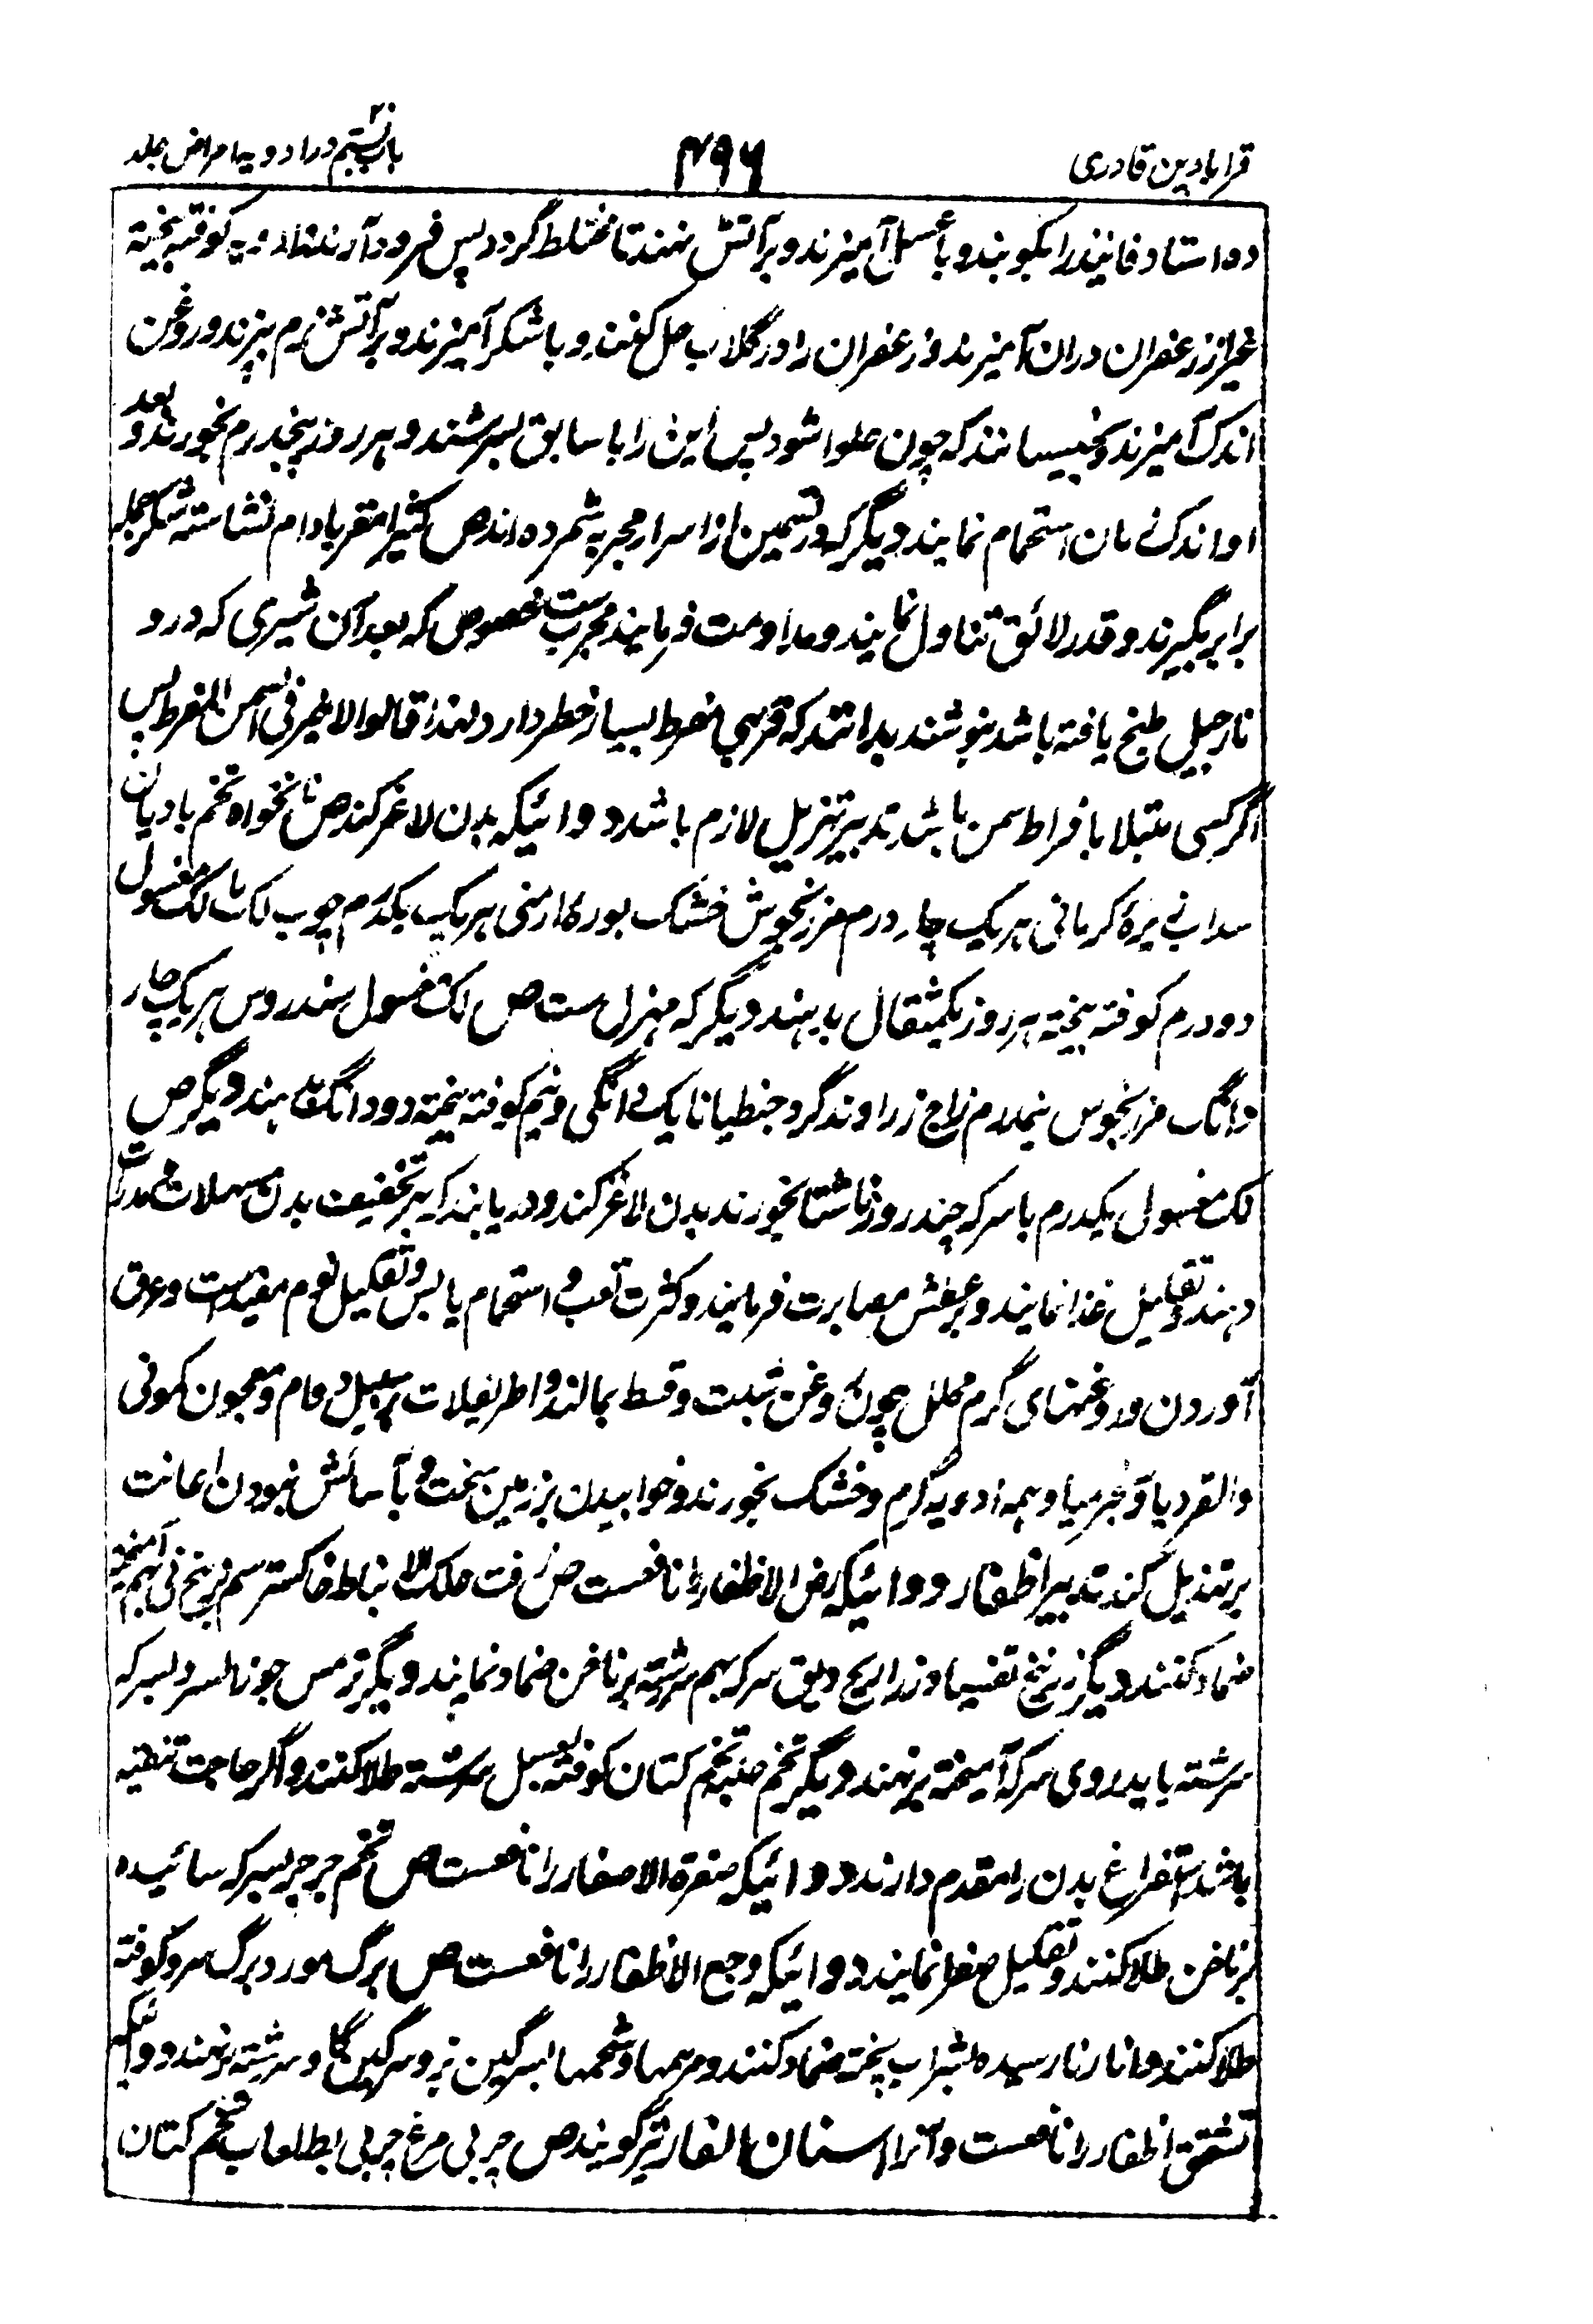 قرابادین قادری
۴۹۶
باب بستم در ادویه امراض جلد
ده استار فانیذ را بکوبند و با عسل آمیزند و بر آتش نهند تا مختلط گردد پس فرود آرند و ادویه کوفته بیخته
غیر از زعفران دران آمیزند و زعفران را در گلاب حل کنند و با شکر آمیزند و بر آتش نرم بپزند و روغن
اندک آمیزند و بخیسانند که چون حلوا شود پس این را با سابق بسرشند و هر روز پنجدرم بخورند و بعد
او اندک زمان استحمام نمایند دیگر که در تسمین از اسرار مجربه شمرده اند ص کتیرا مغز بادام نشاسته شکر جمله
برابر بگیرند و قدر لائق تناول نمایند و مداومت فرمایند مجربست خصوص که بعد آن شیری که درو
نارجیل طبخ یافته باشد بنوشند بدانند که فربهی مفرط بسیار خطر دارد لهذا قالوا لا خیر فی السمن المفرط پس
اگر کسی مبتلا بافراط سمن باشد تدبیر تهزیل لازم باشد دوائیکه بدن لاغر کند ص نانخواه تخم بادیان
سداب زیره کرمانی هر یک چار درم مرزنجوش خشک بوره ارمنی هر یک یکدرم چوب لک یا لک مغسول
دو درم کوفته بیخته هر روز یکمثقال بدهند دیگر که مهزل ست ص لک مغسول سندروس هر یک چار
دانگ مرزنجوس نیمدرم زاج زراوند گرد جنطیانا یک دانگی و نیم کوفته بیخته دو دانگ بدهند دیگر ص
لک مغسول یکدرم با سرکه چند روز ناشتا بخورند بدن لاغر کند و دریابند که بر تخفیف بدن مسهلات و مدرات
دهند و تقلیل غذا نمایند و بر عطش مصابرت فرمایند و کثرت تعب و استحمام یابس و تقلیل نوم مفیدست و عرق
آوردن و روغنهای گرم محلل چون روغن شبت و قسط بمالند و اطریفلات بر سبیل دوام و معجون کمونی
و انقردیا و و همه ادویه گرم و خشک بخورند و خوابیدن بر زمین سخت و بآسائش نبودن اعانت
بر تهزیل کند تدبیر اظفار دوائیکه رض الاظفار را نافعست ص زفت علک الانباط خاکستر سم بز زرنیخ بهم آمیخته
ضماد کنند دیگر زرنیخ تفسیا و ذراریح و بق سرکه بهم سرشته بر ناخن ضماد نمایند دیگر ترمس جوز السرو بسرکه
سرشته یا بدردی سرکه آمیخته بر نهند دیگر تخم حلبه تخم کتان کوفته بعسل سرشته طلا کنند و اگر حاجت تنقیه
باشد استفراغ بدن را مقدم دارند دوائیکه صفرة الاظفار را نافعست ص تخم جرجیر بسرکه سائیده
بر ناخن طلا کنند و تقلیل صفرا نمایند دوائیکه وجع الاظفار را نافعست ص برگ مورد برگ سرو کوفته
طلا کنند و انار نارسیده بشراب پخته ضماد کنند و مرهمها و شحمها بسرگین بز و سرگین گاو سرشته بر نهند دوائیکه
تشقق اظفار را نافعست و آنرا اسنان الفار نیز گویند ص چربی مرغ چربی بط لعاب تخم کتان